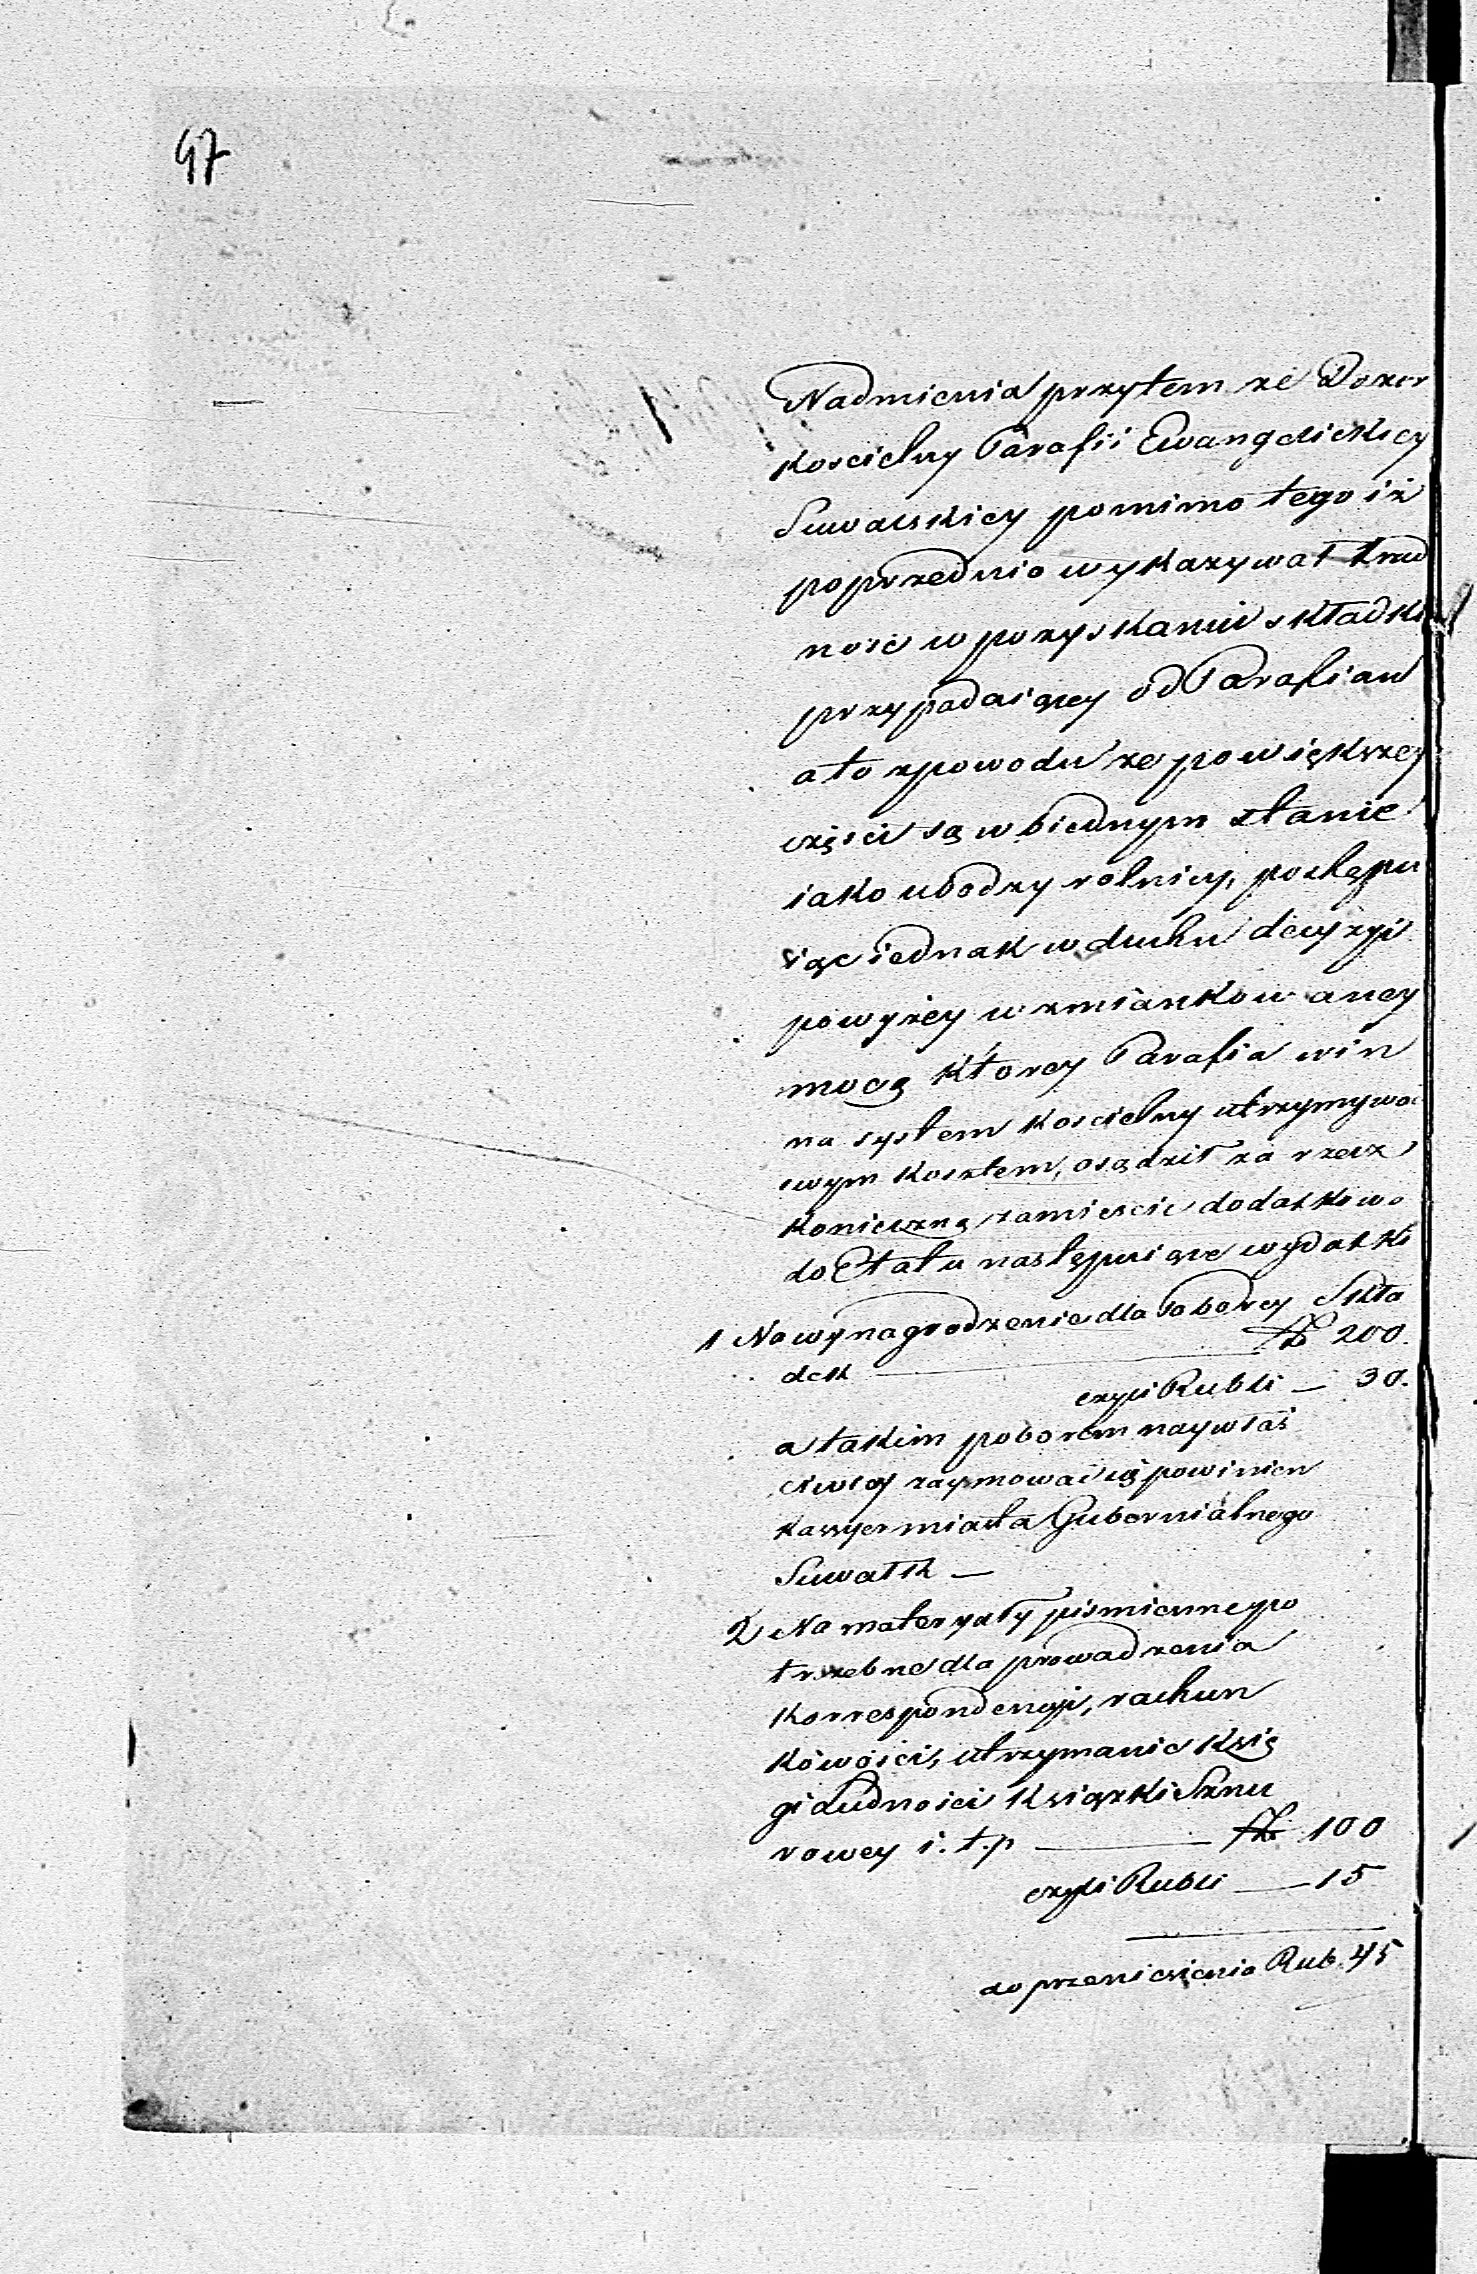 47
Nadmienia przytem że Dozor
Koscielny Parafii Ewangelickiey
Suwalskiey pomimo tego iż
poprzednio wykazywał trud
ność w pozyskaniu składki
przypadaiącey od Parafian
a to z powodu że powiększey
części są w biednym stanie
iako ubodzy rolnicy, postępu
iąc iednak w duchu decyzyi
powyżey wzmiankowaney
mocą ktorey Parafia win
na system koscielny utrzymywać
swym kosztem, osądził za rzecz
konieczną zamieścić dodatkowo
do Etatu następuiące wydatki
1 Na wynagrodzenie dla Poborcy Skła
dek — złp 200.
czyli Rubli — 30.
a takim poborem naywłaś
ciwiey zaymować się powinien
Kassyer miasta Gubernialnego
Suwałk —
2 Na materyały piśmienne po
trzebne dla prowadzenia
korrespondencyi, rachun
kówości, utrzymanie Księ
gi Ludności Książki Sznu
rowey i. t. p — złp 100
czyli Rubli — 15
do przeniesienia Rub. 45